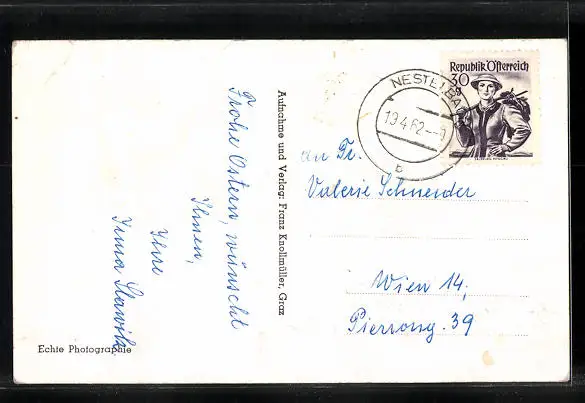 Frohe Ostern, wünscht
Ihnen,
Ihre
Irma
Echte Photographie
Aufnahme und Verlag: Franz Knollmüller, Graz
Republik Österreich
30
g
19.4.62
b
an Fr.
Valerie Schneider
Wien 14,
39